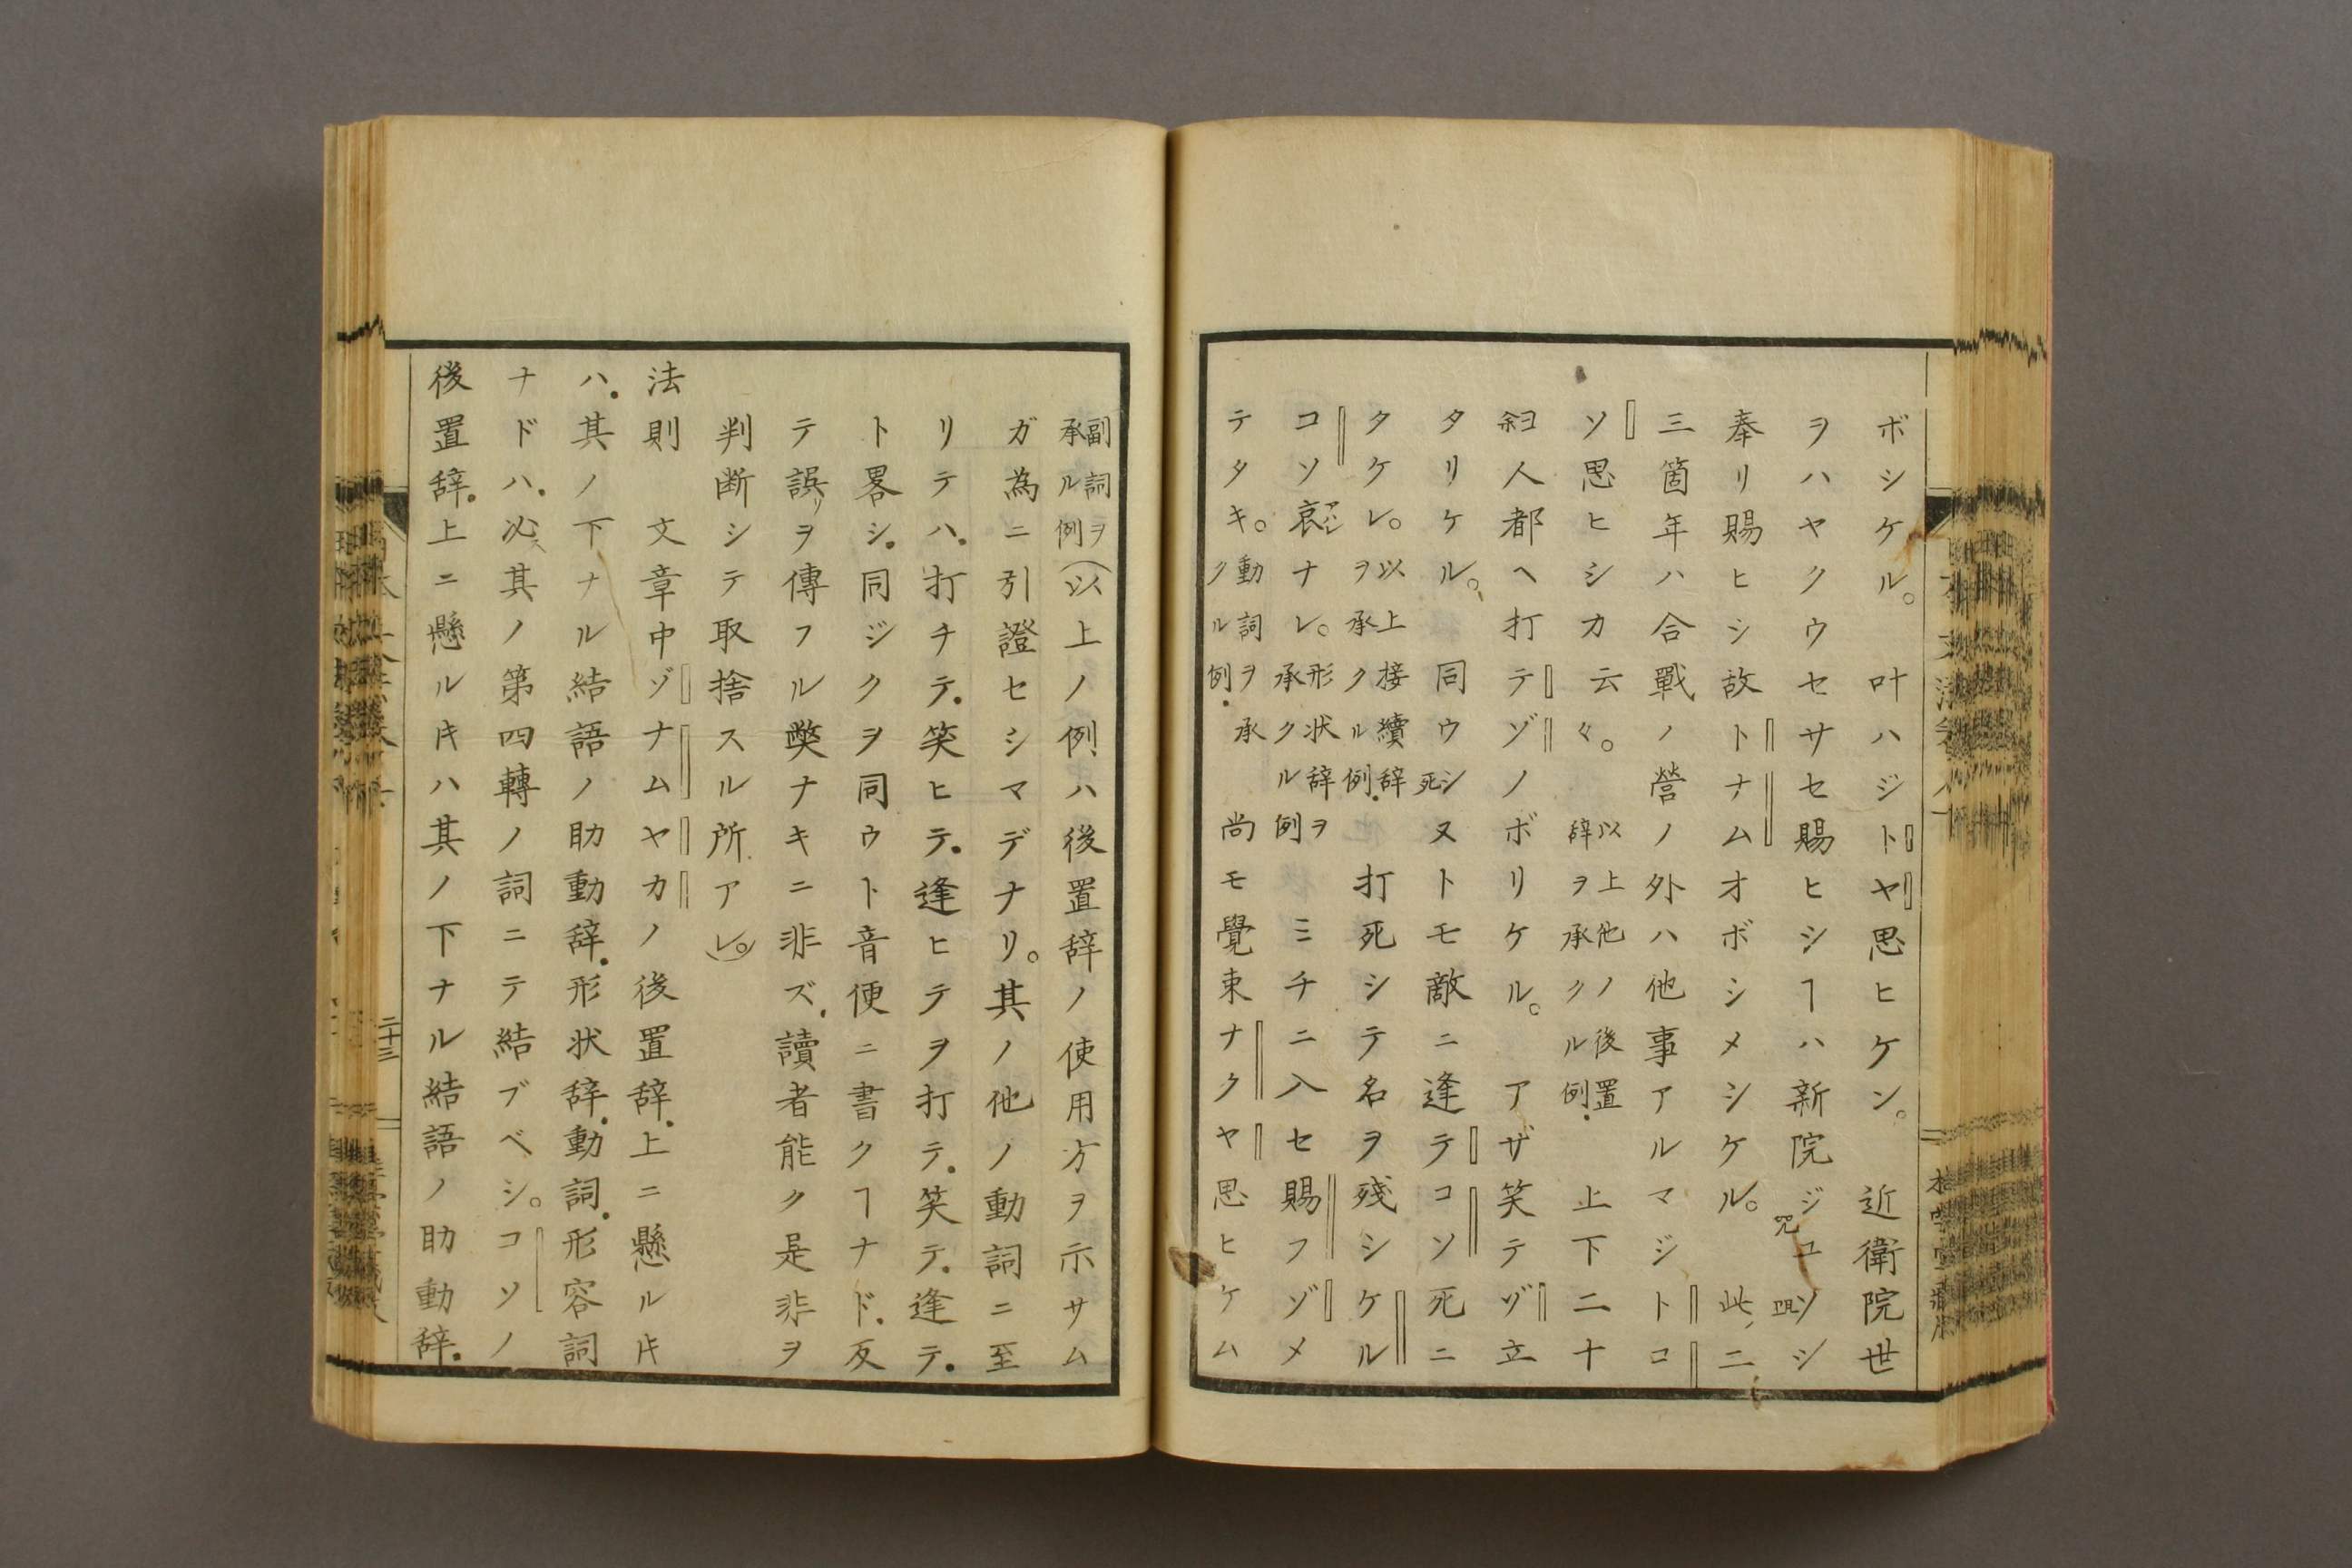 ボシケル。叶ハジトヤ思ヒケン。近衛院世
ヲハヤクウセサセ賜ヒシヿハ新院ジユソシ
呪咀
奉リ賜ヒシ故トナムオボシメシケル。此二
三箇年ハ合戰ノ營ノ外ハ他事アルマジトコ
ソ思ヒシカ云々。以上他ノ後置辞ヲ承クル例.上下二十
餘人都ヘ打テゾノボリケル。アザ笑テゾ立
タリケル。同ウ死シヌトモ敵ニ逢テコソ死ニ
タケレ。以上接續辞ヲ承クル例.打死シテ名ヲ殘シケル
コソ哀ナレ。形状辞ヲ承クル例 ミチニ入セ賜フゾメ
テタキ。動詞ヲ承クル例.尚モ覺束ナクヤ思ヒケム
副詞ヲ承ル例(以上ノ例ハ後置辞ノ使用方ヲ示サム
ガ為ニ引證セシマデナリ。其ノ他ノ動詞ニ至
リテハ.打チテ.笑ヒテ.逢ヒテヲ打テ.笑テ.逢テ.
ト畧シ.同ジクヲ同ウト音便ニ書クヿナド.反
テ誤リヲ傳フル弊ナキニ非ズ.讀者能ク是非ヲ
判断シテ取捨スル所アレ。)
法則 文章中ゾナムヤカノ後置辞.上ニ懸ルキ
ハ.其ノ下ナル結語ノ助動辞.形状辞.動詞.形容詞
ナドハ.必ス其ノ第四轉ノ詞ニテ結ブベシ。コソノ
後置辞.上ニ懸ルキハ其ノ下ナル結語ノ助動辞.
二十三